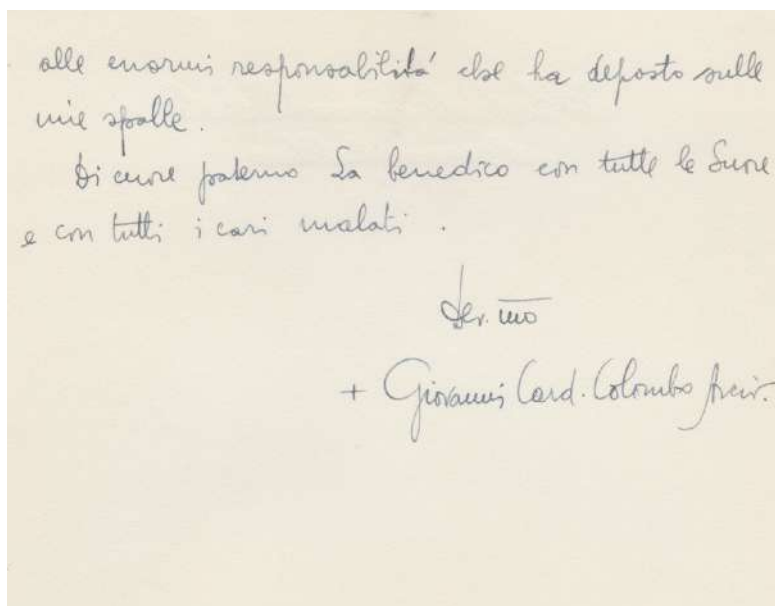 alle enormi responsabilitá che ha deposto sulle
mie spalle.
Di cuore paterno La benedico con tutte le Suore
e con tutti i cari malati.
dev.mo
+ Giovanni Card. Colombo Arciv.